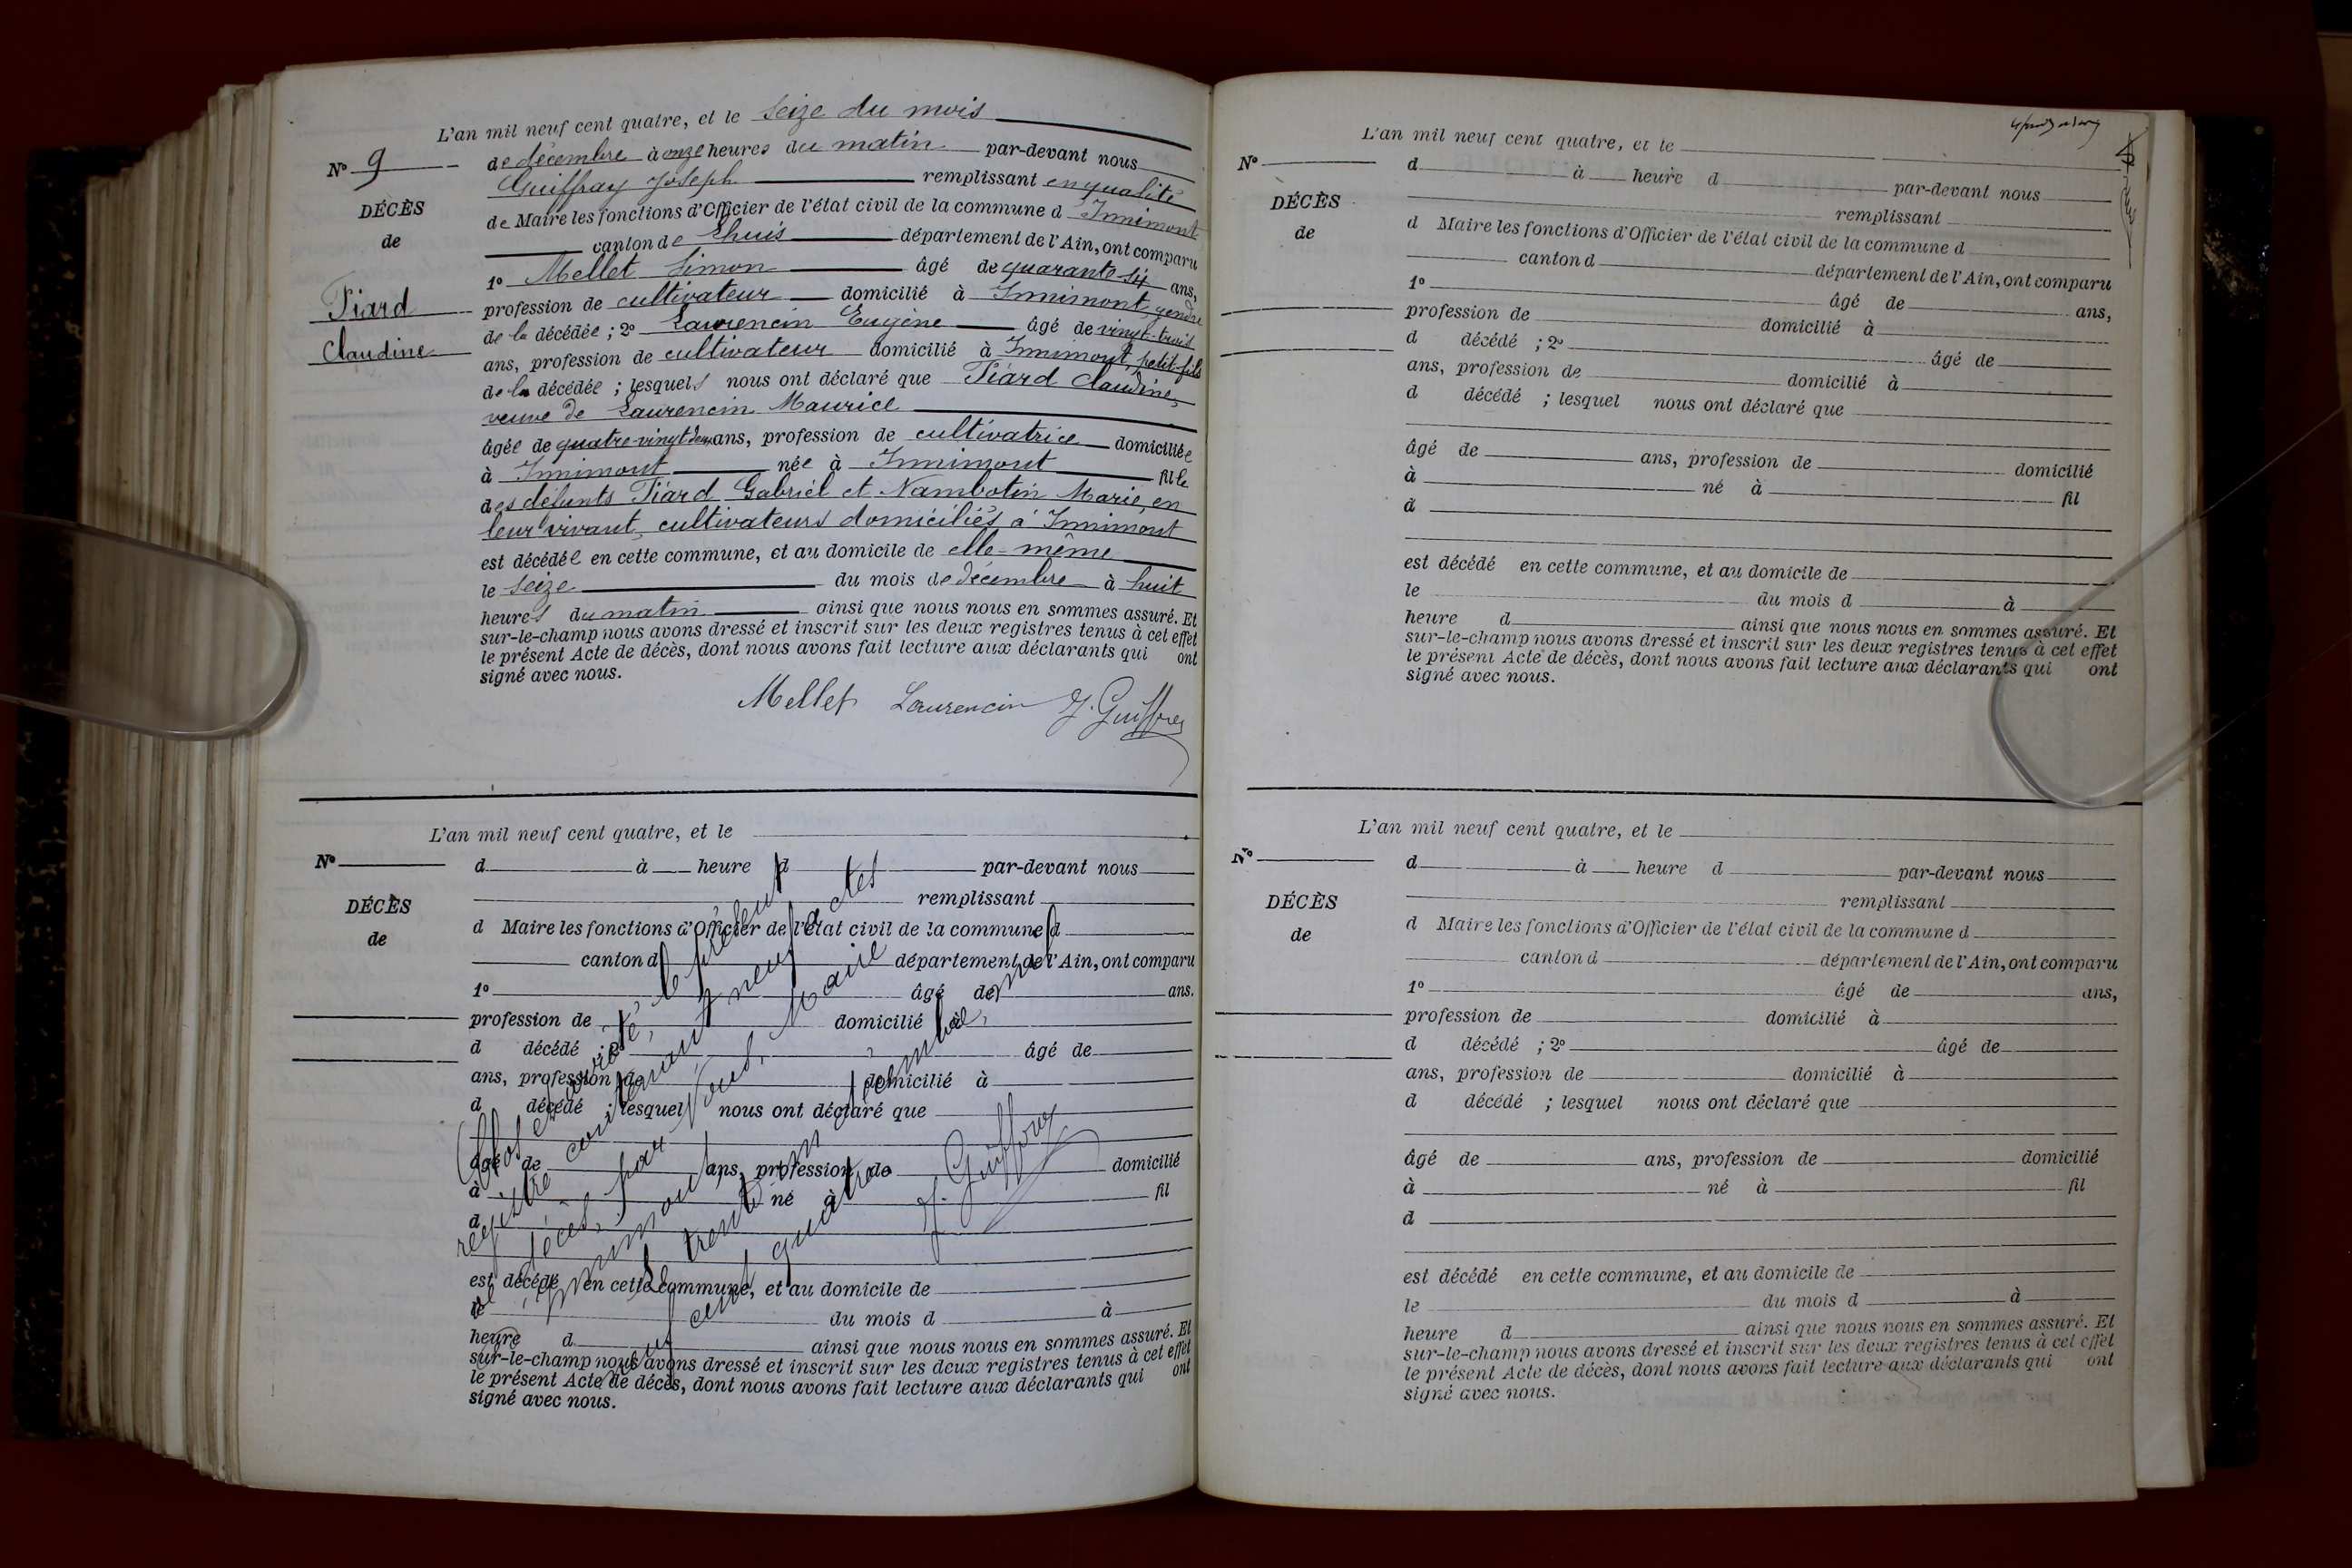 L'an mil neuf cent quatre, et le seize du mois
N° 9 de décembre à onze heures du matin par-devant nous
Guiffray Joseph remplissant en qualité
DÉCÈS
de Maire les fonctions d'Officier de l'état civil de la commune d Innimont
de
canton de Lhuis département de l'Ain, ont comparu
1° Mellet Simon âgé de quarante six ans,
Piard
profession de cultivateur domicilié à Innimont, gendre
de la décédée ; 2° Laurencin Eugène âgé de vingt-trois
Claudine
ans, profession de cultivateur domicilié à Innimont, petit-fils
de la décédée ; lesquels nous ont déclaré que Piard Claudine,
veuve de Laurencin Maurice
âgée de quatre-vingt deux ans, profession de cultivatrice domiciliée
à Innimont née à Innimont fille
des défunts Piard Gabriel et Nambotin Marie, en
leur vivant, cultivateurs domiciliés à Innimont
est décédée en cette commune, et au domicile de elle-même
le seize du mois de décembre à huit
heures du matin ainsi que nous nous en sommes assuré. Et
sur-le-champ nous avons dressé et inscrit sur les deux registres tenus à cet effet
le présent Acte de décès, dont nous avons fait lecture aux déclarants qui ont
signé avec nous.
Mellet Laurencin J. Guiffray
L'an mil neuf cent quatre, et le
N° d à heure d par-devant nous
remplissant
DÉCÈS
d Maire les fonctions d'Officier de l'état civil de la commune d
de
canton d département de l'Ain, ont comparu
1° âgé de ans.
profession de domicilié à
d décédé ; 2° âgé de
ans, profession de domicilié à
d décédé ; lesquel nous ont déclaré que
âgé de ans, profession de domicilié
à né à fil
d
est décédé en cette commune, et au domicile de
le du mois d à
heure d ainsi que nous nous en sommes assuré. Et
sur-le-champ nous avons dressé et inscrit sur les deux registres tenus à cet effet
le présent Acte de décès, dont nous avons fait lecture aux déclarants qui ont
signé avec nous.
Clos et arrêté, le présent
registre contenant neuf actes
de décès, par Nous, Maire
d'Innimont
le trente un décembre, mil
neuf cent quatre
J. Guiffray
L'an mil neuf cent quatre, et le
N° d à heure d par-devant nous
remplissant
DÉCÈS
d Maire les fonctions d'Officier de l'état civil de la commune d
de
canton d département de l'Ain, ont comparu
1° âgé de ans,
profession de domicilié à
d décédé ; 2° âgé de
ans, profession de domicilié à
d décédé ; lesquel nous ont déclaré que
âgé de ans, profession de domicilié
à né à fil
d
est décédé en cette commune, et au domicile de
le du mois d à
heure d ainsi que nous nous en sommes assuré. Et
sur-le-champ nous avons dressé et inscrit sur les deux registres tenus à cet effet
le présent Acte de décès, dont nous avons fait lecture aux déclarants qui ont
signé avec nous.
L'an mil neuf cent quatre, et le
N° d à heure d par-devant nous
remplissant
DÉCÈS
d Maire les fonctions d'Officier de l'état civil de la commune d
de
canton d département de l'Ain, ont comparu
1° âgé de ans,
profession de domicilié à
d décédé ; 2° âgé de
ans, profession de domicilié à
d décédé ; lesquel nous ont déclaré que
âgé de ans, profession de domicilié
à né à fil
d
est décédé en cette commune, et au domicile de
le du mois d à
heure d ainsi que nous nous en sommes assuré. Et
sur-le-champ nous avons dressé et inscrit sur les deux registres tenus à cet effet
le présent Acte de décès, dont nous avons fait lecture aux déclarants qui ont
signé avec nous.